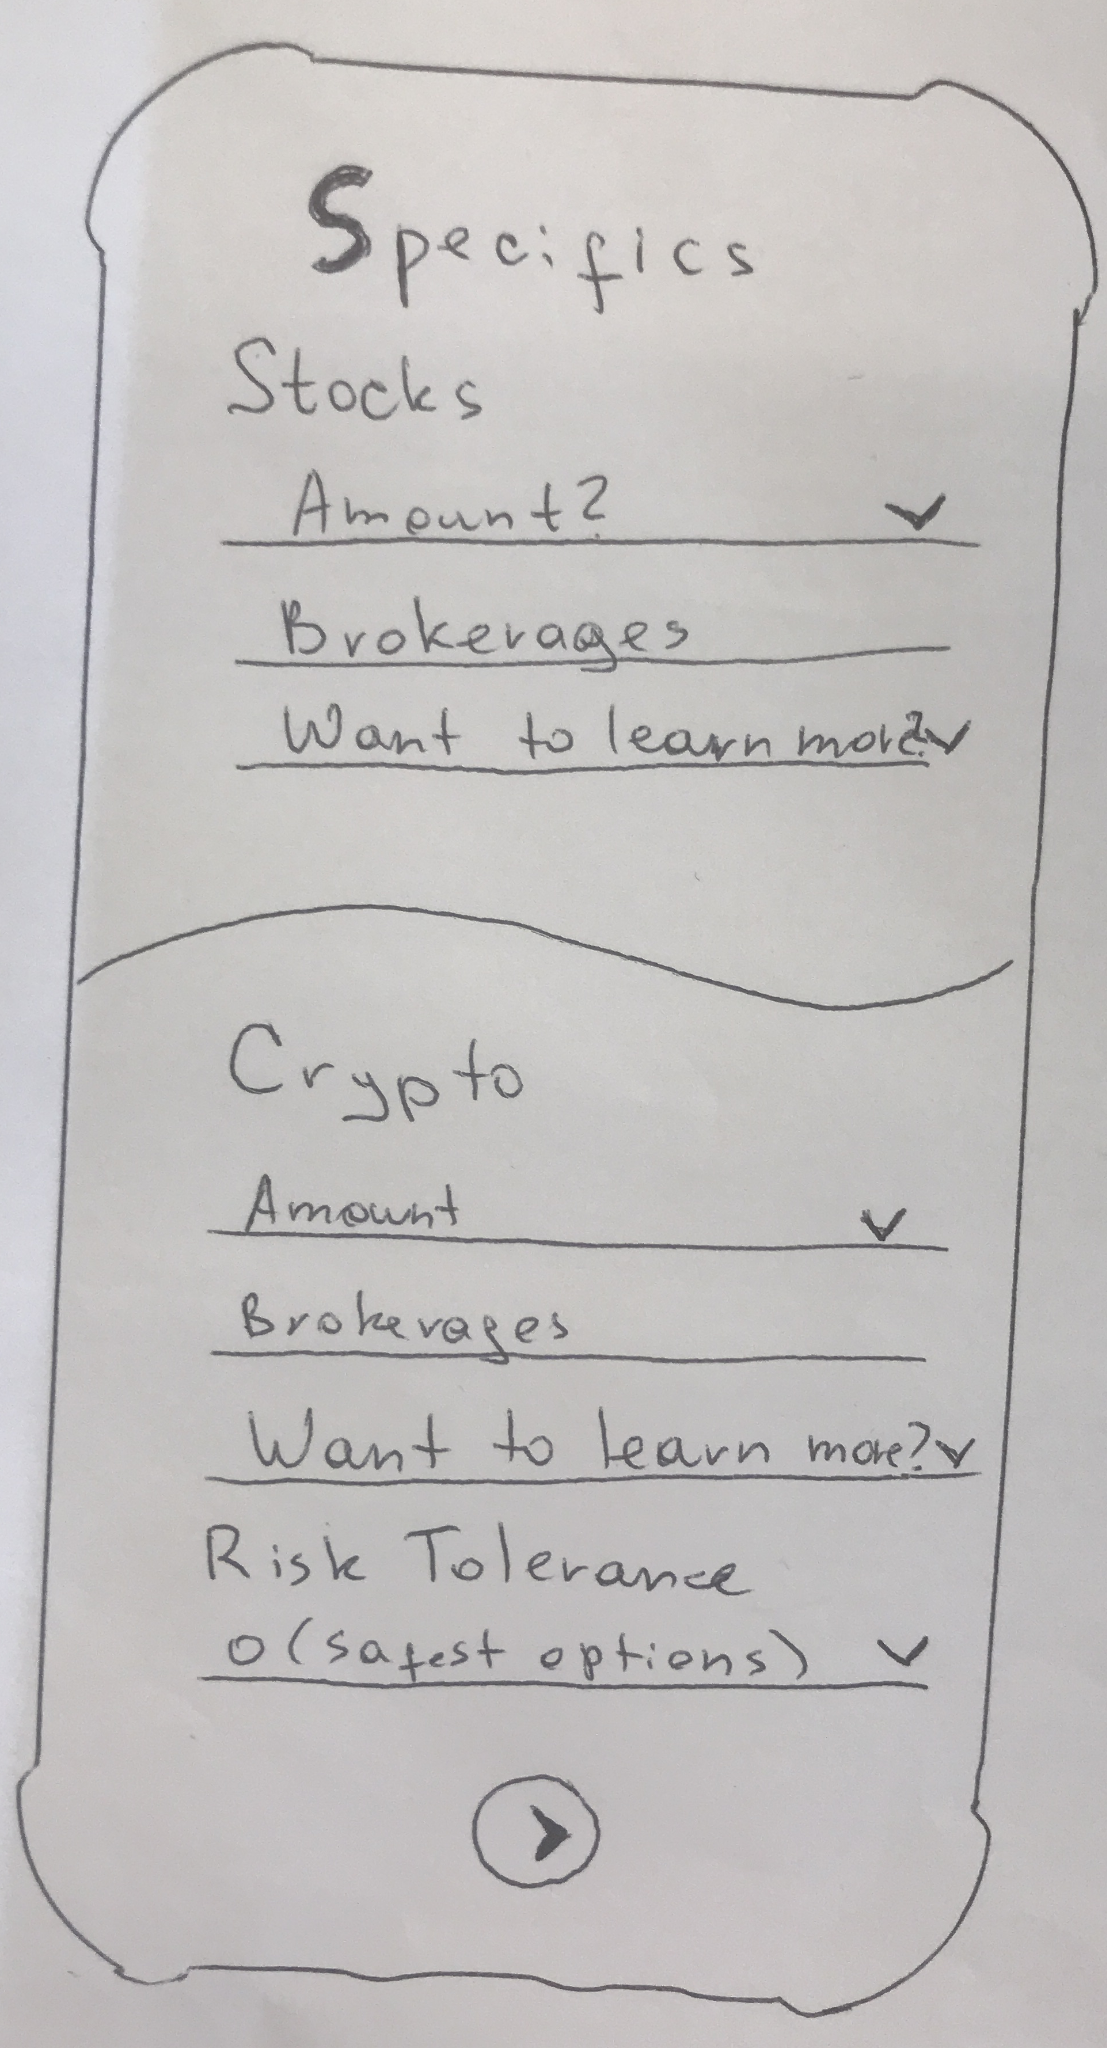 Specifics
Stocks
Amount?
Brokerages
Want to learn more?
Crypto
Amount
Brokerages
Want to learn more?
Risk Tolerance
0 (safest options)